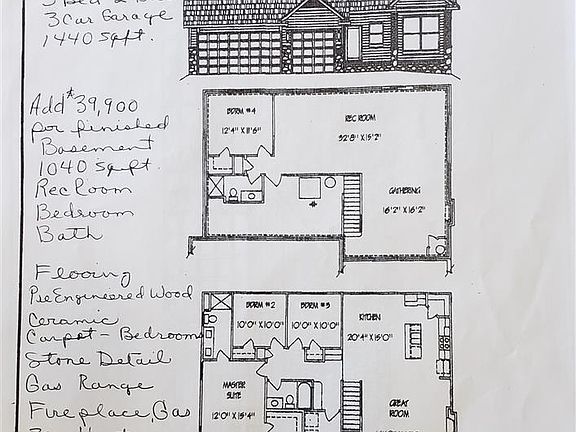 3 Car Garage
1440 sqft.
Add $39,900
for finished
Basement
1040 sqft.
Rec Room
Bedroom
Bath
Flooing
Pre Engineered Wood
Ceramic
Carpet - Bedrooms
Stone Detail
Gas Range
Fireplace, Gas
BDRM #4
12'4" X 11'6"
REC ROOM
32'8" X 15'2"
GATHERING
16'2" X 16'2"
BDRM #2
10'0" X 10'0"
BDRM #3
10'0" X 10'0"
KITCHEN
20'4" X 15'0"
MASTER
SUITE
12'0" X 15'4"
GREAT
ROOM